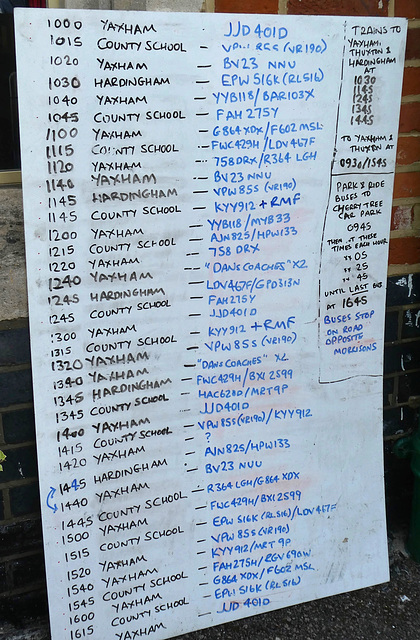 1000 YAXHAM JJD 401D
1015 COUNTY SCHOOL - VPW 85S (VR190)
1020 YAXHAM - BV23 NNU
1030 HARDINGHAM - EPW 516K (RLS16)
1040 YAXHAM - YYB118/BAR103X
1045 COUNTY SCHOOL - FAH 275Y
1100 YAXHAM - G864XDX/F602 MSL
1115 COUNTY SCHOOL - FWC429H/LDV467F
1120 YAXHAM - 758DRX/R364 LGH
1140 YAXHAM - BV23 NNU
1145 HARDINGHAM - VPW 85S (VR190)
1145 COUNTY SCHOOL - KYY912 + RMF
1200 YAXHAM - YYB118/MYB33
1215 COUNTY SCHOOL - AJN825/HPW133
1220 YAXHAM - 758 DRX
1240 YAXHAM - "DANS COACHES" X2
1245 HARDINGHAM - LDV467F/GPD313N
1245 COUNTY SCHOOL - FAH275Y
1300 YAXHAM - JJD401D
1315 COUNTY SCHOOL - KYY912 + RMF
1320 YAXHAM - VPW 85S (VR190)
1340 YAXHAM - "DANS COACHES" X2
1345 HARDINGHAM - FWC429H/BXI 2599
1345 COUNTY SCHOOL - HAC628D/MRT9P
1400 YAXHAM - JJD401D
1415 COUNTY SCHOOL - VPW 85S (VR190)/KYY912
1420 YAXHAM - ?
1445 HARDINGHAM - AJN825/HPW133
1440 YAXHAM - BV23 NNU
1445 COUNTY SCHOOL - R364 LGH/G864 XDX
1500 YAXHAM - FWC429H/BXI2599
1515 COUNTY SCHOOL - EPW 516K (RLS16)/LDV467F
1520 YAXHAM - VPW 85S (VR190)
1540 YAXHAM - KYY912/MRT 9P
1545 COUNTY SCHOOL - FAH275H/RGV690W
1600 YAXHAM - G864 XDX/F602 MSL
1615 COUNTY SCHOOL - EPW 516K (RLS16)
YAXHAM - JJD 401D
TRAINS TO
YAXHAM,
THUXTON &
HARDINGHAM
AT
1030
1145
1245
1345
1445
TO YAXHAM &
THUXTON AT
0930/1545
PARK & RIDE
BUSES TO
CHERRY TREE
CAR PARK
0945
THEN AT THESE
TIMES EACH HOUR
05
25
45
UNTIL LAST BUS
AT 1645
BUSES STOP
ON ROAD
OPPOSITE
MORRISONS